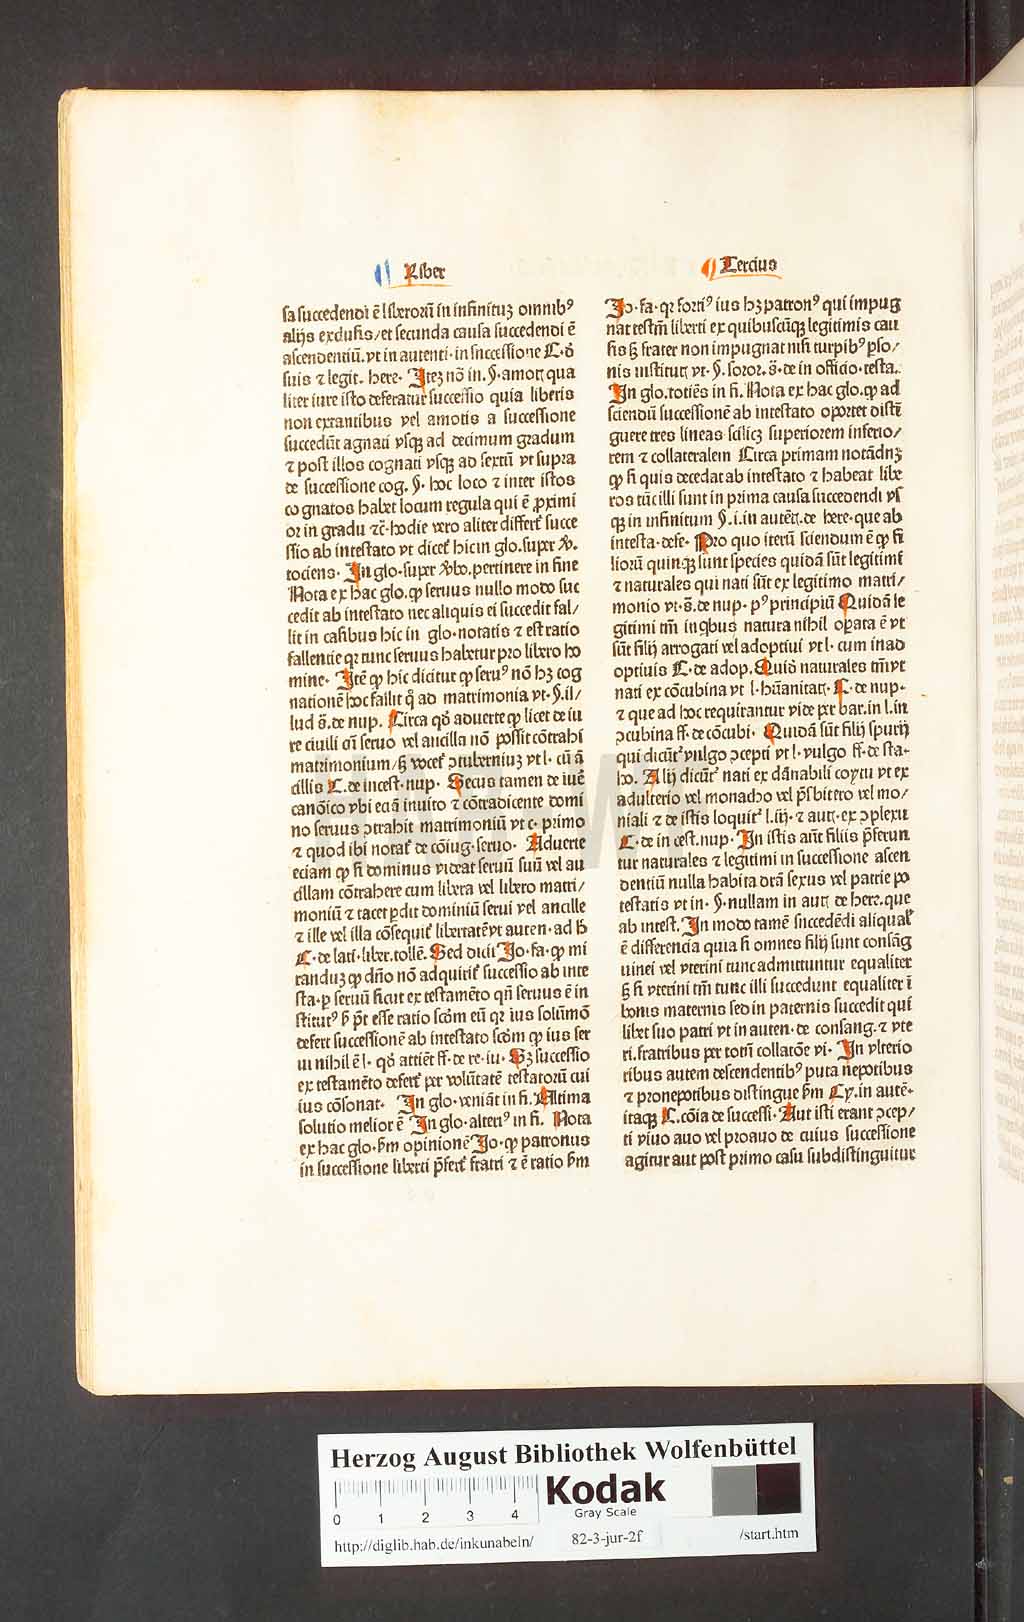 Liber
Tercius
sa succedendi ē liberorū in infinituꝫ omnibꝰ
alijs exclusis/et secunda causa succedendi ē
ascendentiū. vt in autenti. in successione C. d̄
suis ⁊ legit. here. Iteꝫ nō in. §. amotꝭ qua
liter iure isto deferatur successio quia liberis
non extantibus vel amotis a successione
succedūt agnati vsqꝫ ad decimum gradum
⁊ post illos cognati vsqꝫ ad sextū vt supra
de successione cog. §. hoc loco ⁊ inter istos
cognatos habet locum regula qui ē ꝓximi
or in gradu ⁊c̄. hodie vero aliter differt̉ succe
ssio ab intestato vt dicet̉ hic in glo. super v̄.
tociens. In glo. super v̄bo. pertinere in fine
Nota ex hac glo. ꝙ seruus nullo modo suc
cedit ab intestato nec aliquis ei succedit fal/
lit in casibus hic in glo. notatis ⁊ est ratio
fallentie qꝛ tunc seruus habetur pro libero ho
mine. Itē ꝙ hic dicitur ꝙ seruꝰ nō hꝫ cog
nationē hoc fallit q̊ ad matrimonia vt. §. il/
lud s̄. de nup. Circa qd̊ aduerte ꝙ licet de iu
re ciuili cū seruo vel ancilla nō possit cōtrahi
matrimonium/ꝫ vocet̉ ꝯtuberniuꝫ vt l. cū ā
cillis C. de incest. nup. Secus tamen de iure
canōico vbi eciā inuito ⁊ cōtradicente domi
no seruus ꝯtrahit matrimoniū vt c. primo
⁊ quod ibi notat̉ de cōiug. seruo. Aduerte
eciam ꝙ si dominus videat seruū suū vel an
cillam cōtrahere cum libera vel libero matri/
moniū ⁊ tacet ꝑdit dominiū serui vel ancille
⁊ ille vel illa cōsequit̉ libertatē vt auten. ad h̄
C. de lati. liber. tollē. Sed dicit Jo. fa. ꝙ mi
randuꝫ ꝙ dn̄o nō adquirit̉ successio ab inte
sta. ꝑ seruū sicut ex testamēto qn̄ seruus ē in
stitutꝰ ꝫ pt̄ esse ratio scōm eū qꝛ ius solūmō
defert successionē ab intestato scōm ꝙ ius ser
ui nihil ē l. qd̊ attiēt ff. de re. iu. Sꝫ successio
ex testamēto defert̉ per volūtatē testatorū cui
ius cōsonat. In glo. veniāt in fi. Altima
solutio melior ē In glo. alterꝰ in fi. Nota
ex hac glo. ẜm opinionē Jo. ꝙ patronus
in successione liberti p̄fert̉ fratri ⁊ ē ratio ẜm
Jo. fa. qꝛ fortiꝰ ius hꝫ patronꝰ qui impug
nat testm̄ liberti ex quibuscūqꝫ legitimis cau
sis ꝫ frater non impugnat nisi turpibꝰ ꝑso/
nis institutꝭ vt. §. soror. s̄. de in officio. testa.
In glo. totiēs in fi. Nota ex hac glo. ꝙ ad
sciendū successionē ab intestato oportet distī
guere tres lineas scilicꝫ superiorem inferio/
rem ⁊ collateralem Circa primam notādnꝫ
ꝙ si quis decedat ab intestato ⁊ habeat libe
ros tūc illi sunt in prima causa succedendi vs
qꝫ in infinitum §. i. in autētꝭ. de here. que ab
intesta. defe. Pro quo iterū sciendum ē ꝙ fi
liorū quinqꝫ sunt species quidā sūt legitimi
⁊ naturales qui nati sūt ex legitimo matri/
monio vt. s̄. de nup. pꝰ principiū Quidā le
gitimi tm̄ in qbus natura nihil oꝑata ē vt
sūt filij arrogati vel adoptiui vt l. cum in ad
optiuis C. de adop. Quidā naturales tm̄ vt
nati ex cōcubina vt l. hūanitatꝭ. C. de nup.
⁊ que ad hoc requirantur vide per bar. in l. in
ꝯcubina ff. de cōcubi. Quidā sūt filij spurij
qui dicūt᷑ vulgo ꝯcepti vt l. vulgo ff. de sta.
ho. Alij dicūt᷑ nati ex dānabili coytu vt ex
adulterio vel monacho vel p̄sbitero vel mo/
niali ⁊ de istis loquit᷑ l. iij. ⁊ autꝭ. ex ꝯplexu
C. de incest. nup. In istis aūt filiis p̄ferun
tur naturales ⁊ legitimi in successione ascen
dentiū nulla habita dr̄ā sexus vel patrie po
testatis vt in. §. nullam in autꝭ de here. que
ab intest. In modo tamē succedēdi aliqualꝭ
ē differencia quia si omnes filij sunt consāg
uinei vel vterini tunc admittuntur equaliter
ꝫ si vterini tm̄ tunc illi succedunt equaliter ī
bonis maternis sed in paternis succedit qui
libet suo patri vt in auten. de consang. ⁊ vte
ri. fratribus per totū collatōe vi. In vlterio
ribus autem descendentibꝰ puta nepotibus
⁊ pronepotibus distingue ẜm Cy. in autē.
itaqꝫ C. cōia de successi. Aut isti erant ꝯcep/
ti viuo auo vel proauo de cuius successione
agitur aut post primo casu subdistinguitur
HAB WF
Herzog August Bibliothek Wolfenbüttel
0 1 2 3 4
Kodak
Gray Scale
http://diglib.hab.de/inkunabeln/ 82-3-jur-2f /start.htm